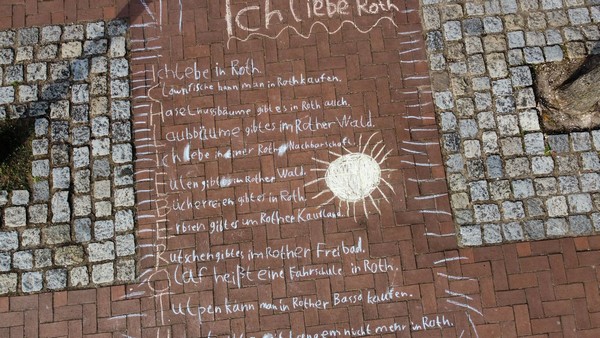 Ich liebe Roth
Ich lebe in Roth.
kann man in Roth kaufen.
Haselnussbäume gibt es in Roth auch.
Laubbäume gibt es im Rother Wald.
Ich lebe in einer Roth Nachbarschaft.
Eulen gibt im Rother Wald.
Bücherreien gibt es in Roth
Erbsen gibt er im Rother Kaufland.
Rutschen gibt es im Rother Freibad.
Olaf heißt eine Fahrsäule in Roth.
Tulpen kann man in Rother Basso kaufen.
nicht mehr in Roth.